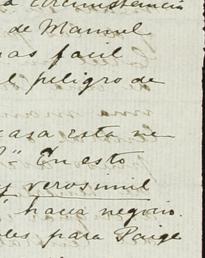 a circunstancia
de Manuel
mas facil
el peligro de
casa esta ne
?" En esto
y verosimil
" hacia negocio.
les para Paige